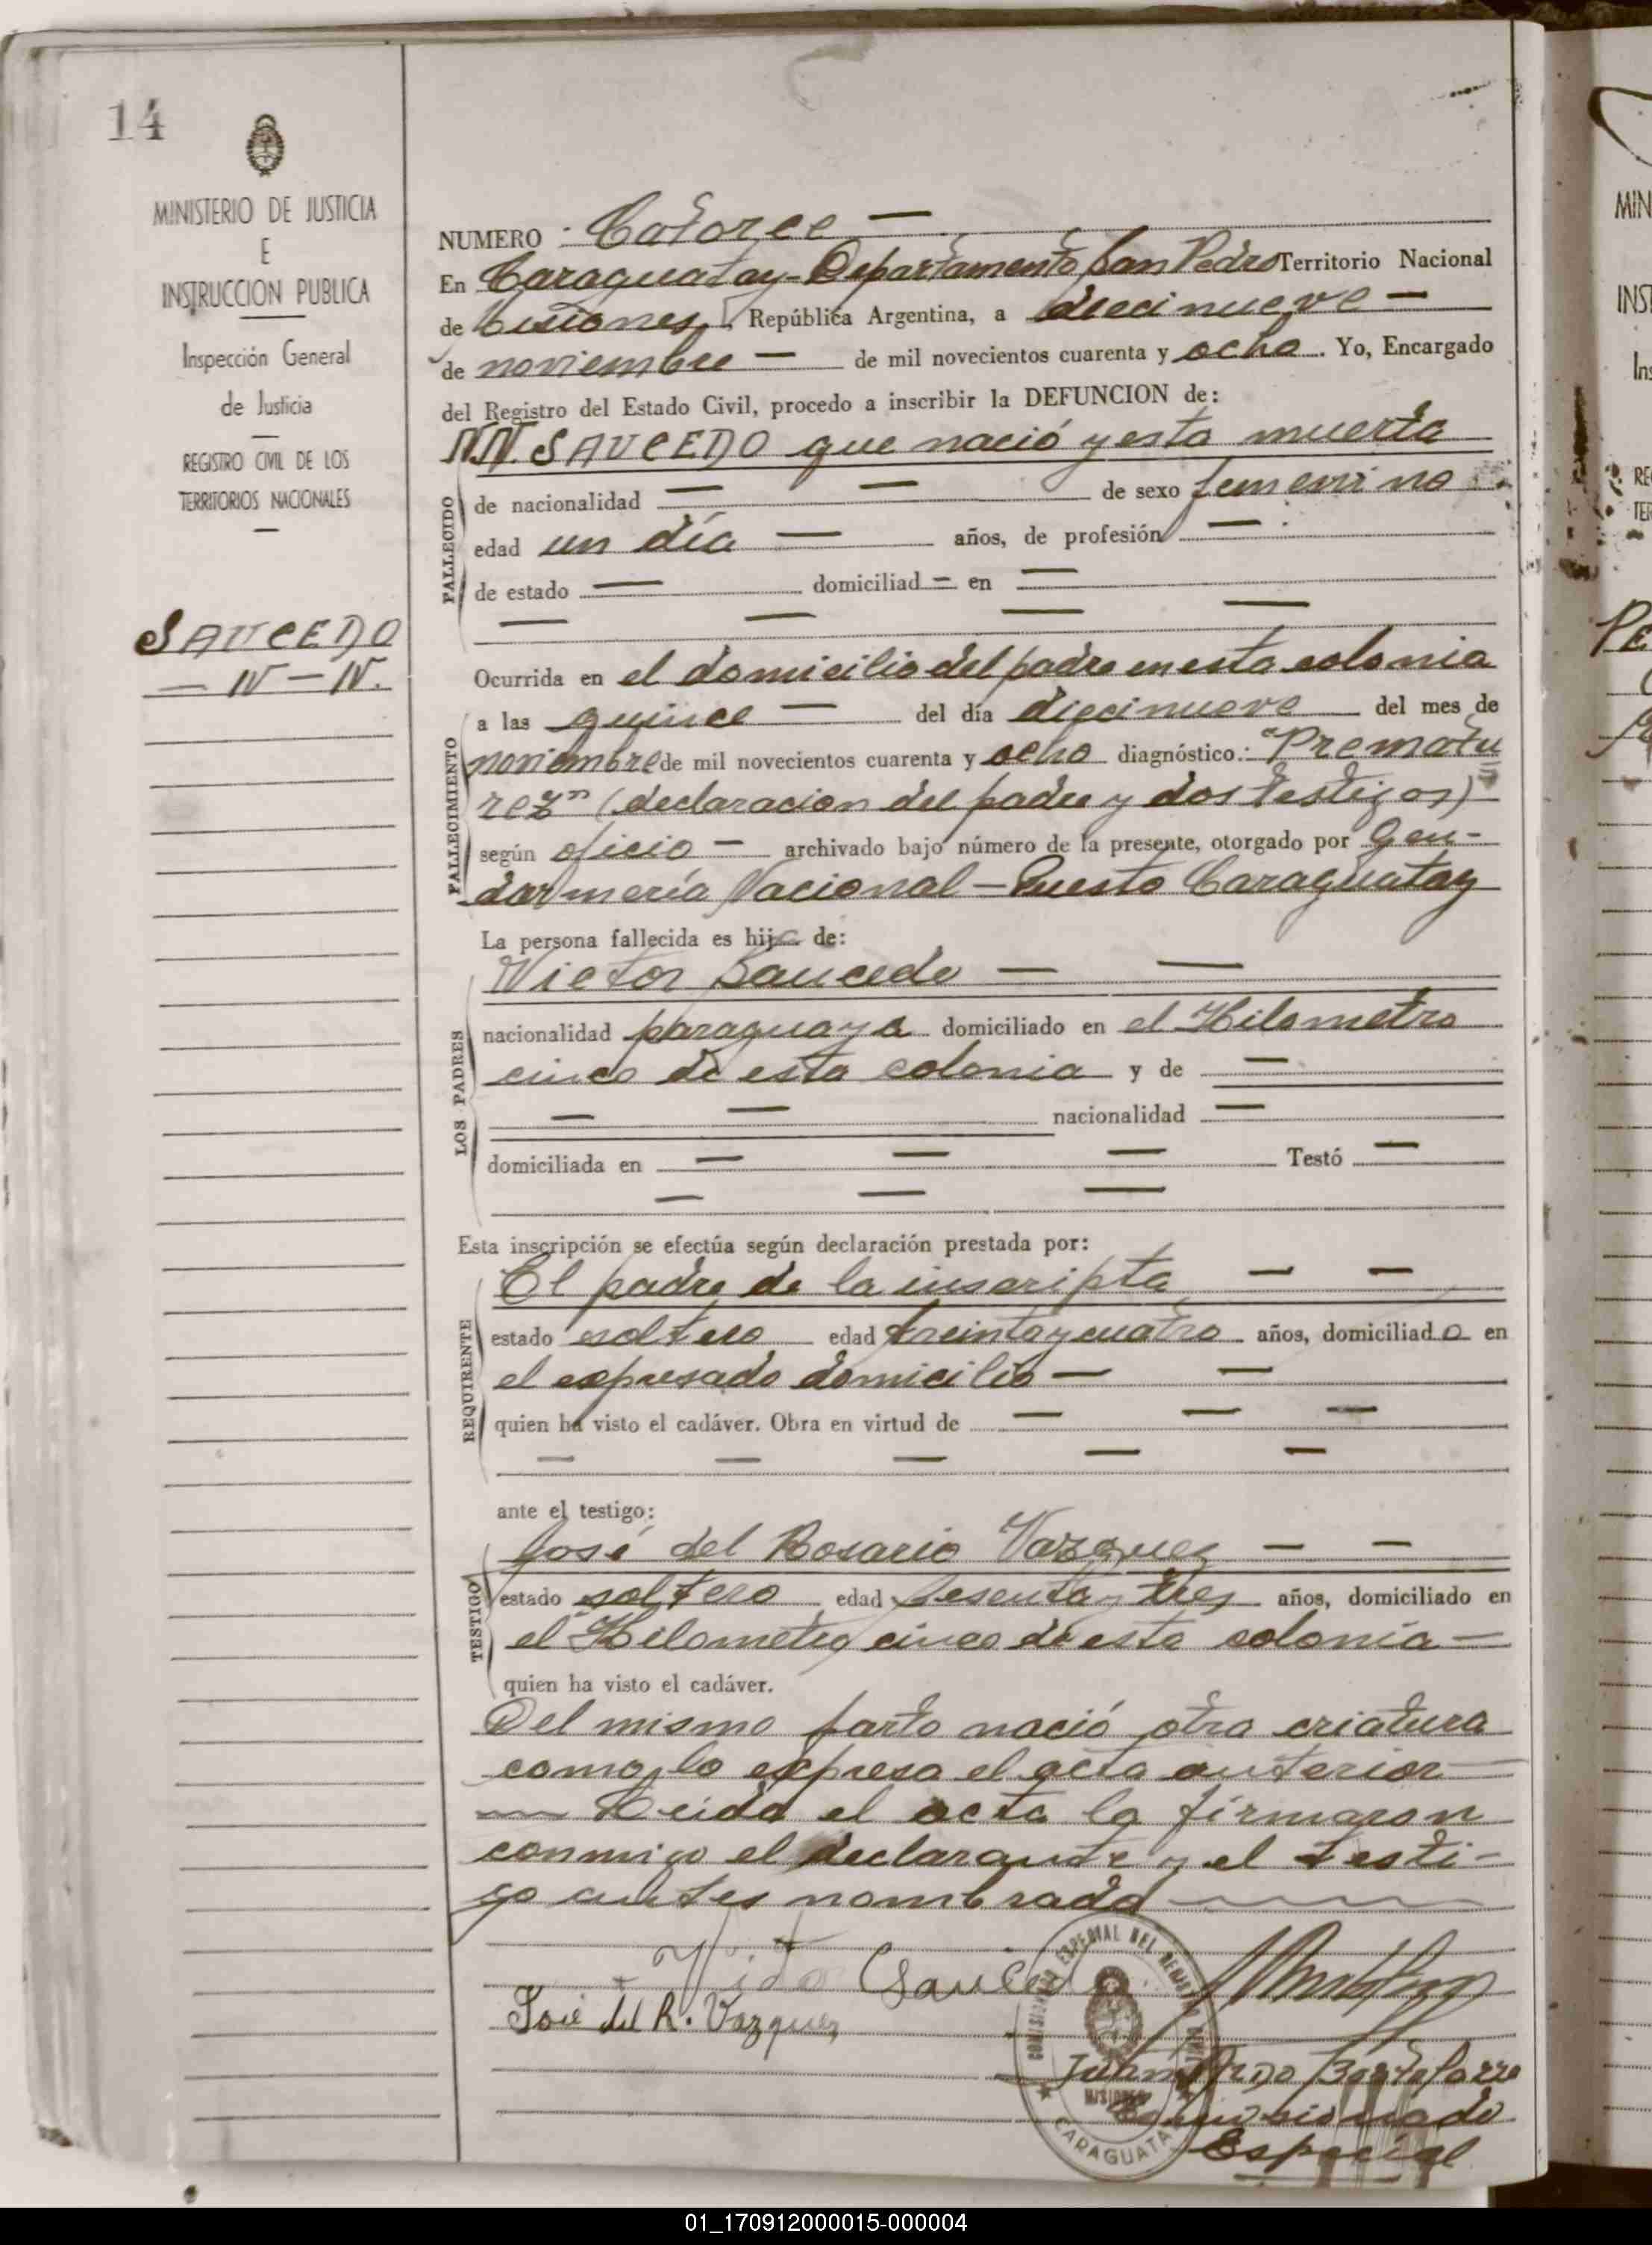 14
MINISTERIO DE JUSTICIA
E
INSTRUCCION PUBLICA
Inspección General
de Justicia
REGISTRO CIVIL DE LOS
TERRITORIOS NACIONALES
SAUCEDO
— N — N.
NUMERO Catorce —
En Caraguatay - Departamento San Pedro Territorio Nacional
de Misiones, República Argentina, a diecinueve —
de noviembre — de mil novecientos cuarenta y ocho. Yo, Encargado
del Registro del Estado Civil, procedo a inscribir la DEFUNCION de:
N.N. SAUCEDO que nació y esta muerta
FALLECIDO
de nacionalidad — — de sexo femenino
edad un día — años, de profesión —
de estado — domiciliad — en —
— — — —
FALLECIMIENTO
Ocurrida en el domicilio del padre en esta colonia
a las quince — del día diecinueve del mes de
noviembre de mil novecientos cuarenta y ocho diagnóstico: "Prematu
rez" (declaracion del padre y dos testigos)
según oficio — archivado bajo número de la presente, otorgado por Gen-
darmería Nacional — Puesto Caraguatay
La persona fallecida es hija de:
LOS PADRES
Victor Saucedo — —
nacionalidad paraguaya domiciliado en el Kilometro
cinco de esta colonia y de —
— — nacionalidad —
domiciliada en — — — Testó —
— — —
Esta inscripción se efectúa según declaración prestada por:
REQUIRENTE
El padre de la inscripta — —
estado soltero edad treinta y cuatro años, domiciliado en
el expresado domicilio — —
quien ha visto el cadáver. Obra en virtud de — — —
— — — — —
ante el testigo:
TESTIGO
José del Rosario Vazquez — —
estado soltero edad sesenta y tres años, domiciliado en
el Kilometro cinco de esta colonia —
quien ha visto el cadáver.
Del mismo parto nació otra criatura
como lo expresa el acta anterior —
— Leida el acta la firmaron
conmigo el declarante y el testi-
go antes nombrado
Victor Saucedo
José del R. Vazquez
COMISIONADO ESPECIAL DEL REGISTRO
MISIONES
CARAGUATAY
Comisionado
Especial
MIN
INS
Ins
RE
TER
01_170912000015-000004